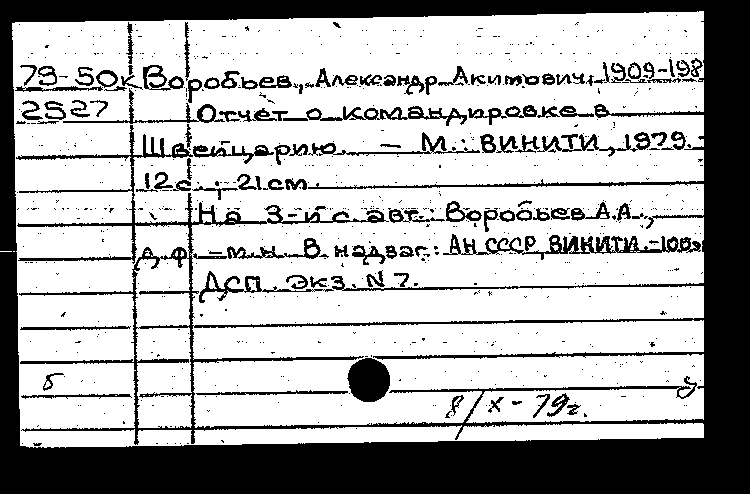 79-50к Воробьев, Александр Акимович, 1909-198
2527 Отчет о командировке в
Швейцарию. — М.: ВИНИТИ, 1979.-
12 с.; 21 см.
На 3-й с. авт.: Воробьев А.А.,
д. ф.-м. н. В надзаг.: АН СССР, ВИНИТИ.-100э
ДСП. Экз. N 7.
б
8/X - 79г.